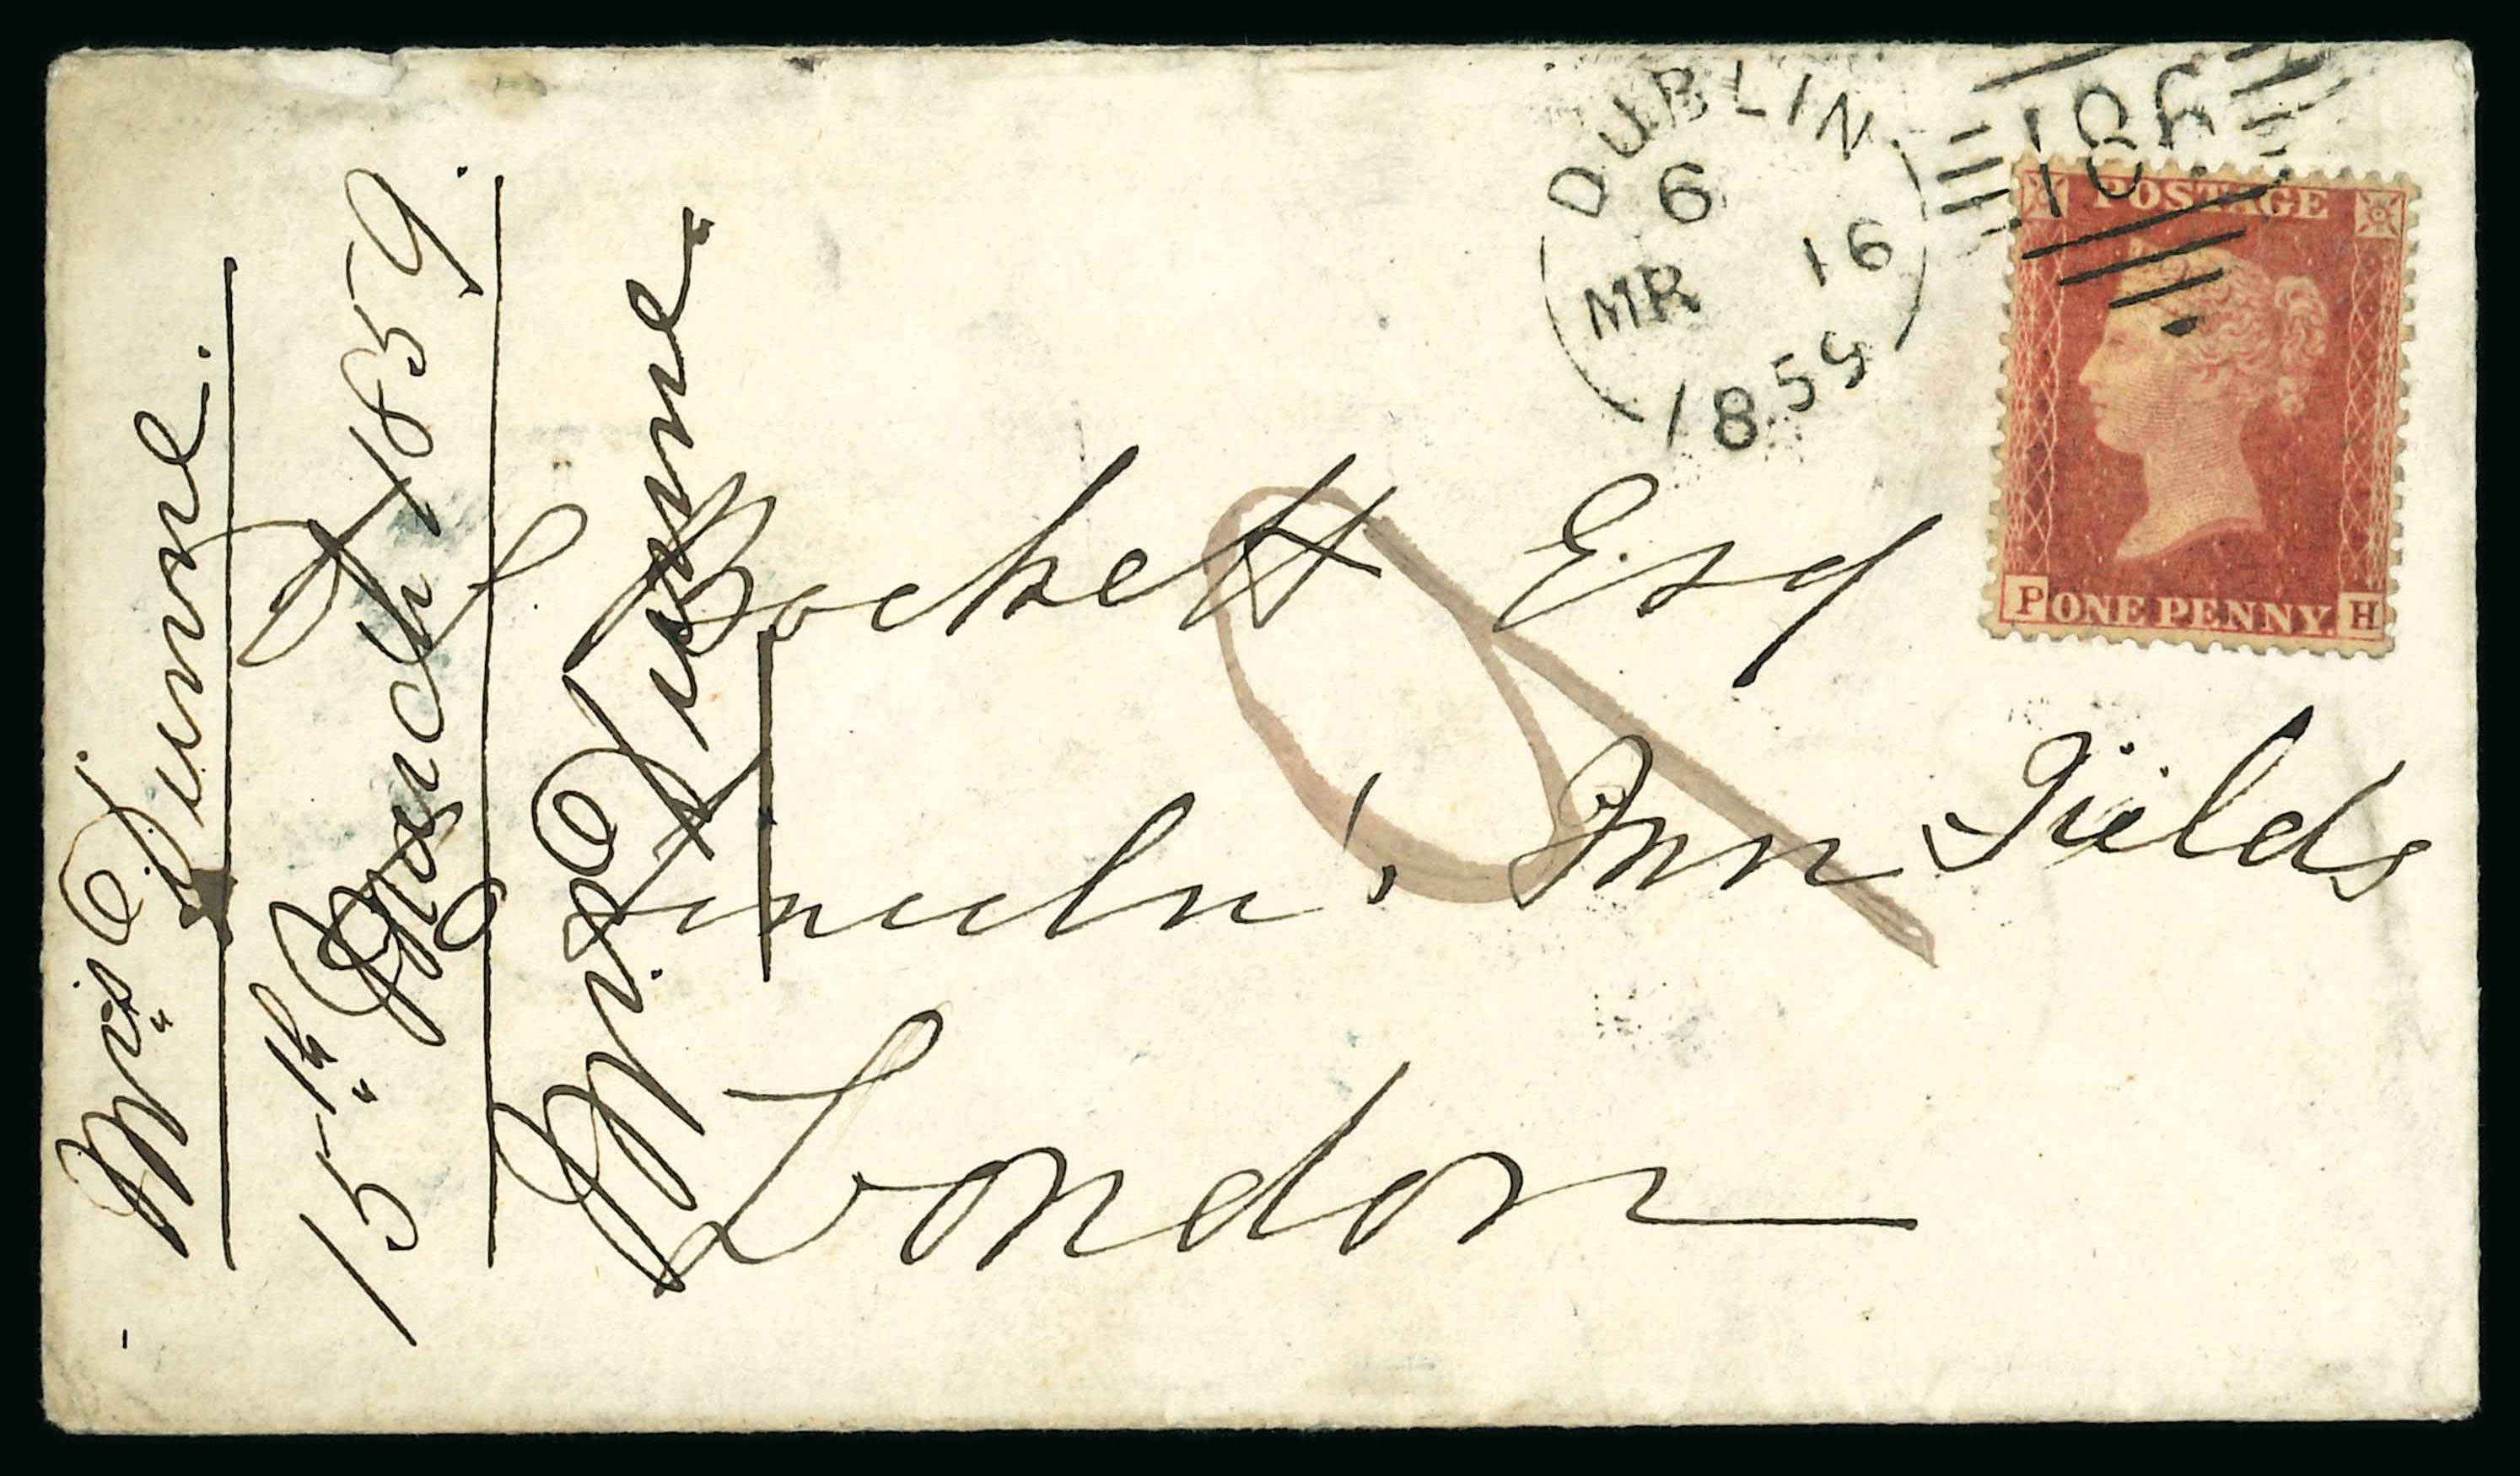 DUBLIN
6
MR 16
1859
186
POSTAGE
P ONE PENNY. H
Bockett Esq
Lincoln's Inn Fields
London
Mrs Dunne.
15th March 1859.
Mrs Dunne